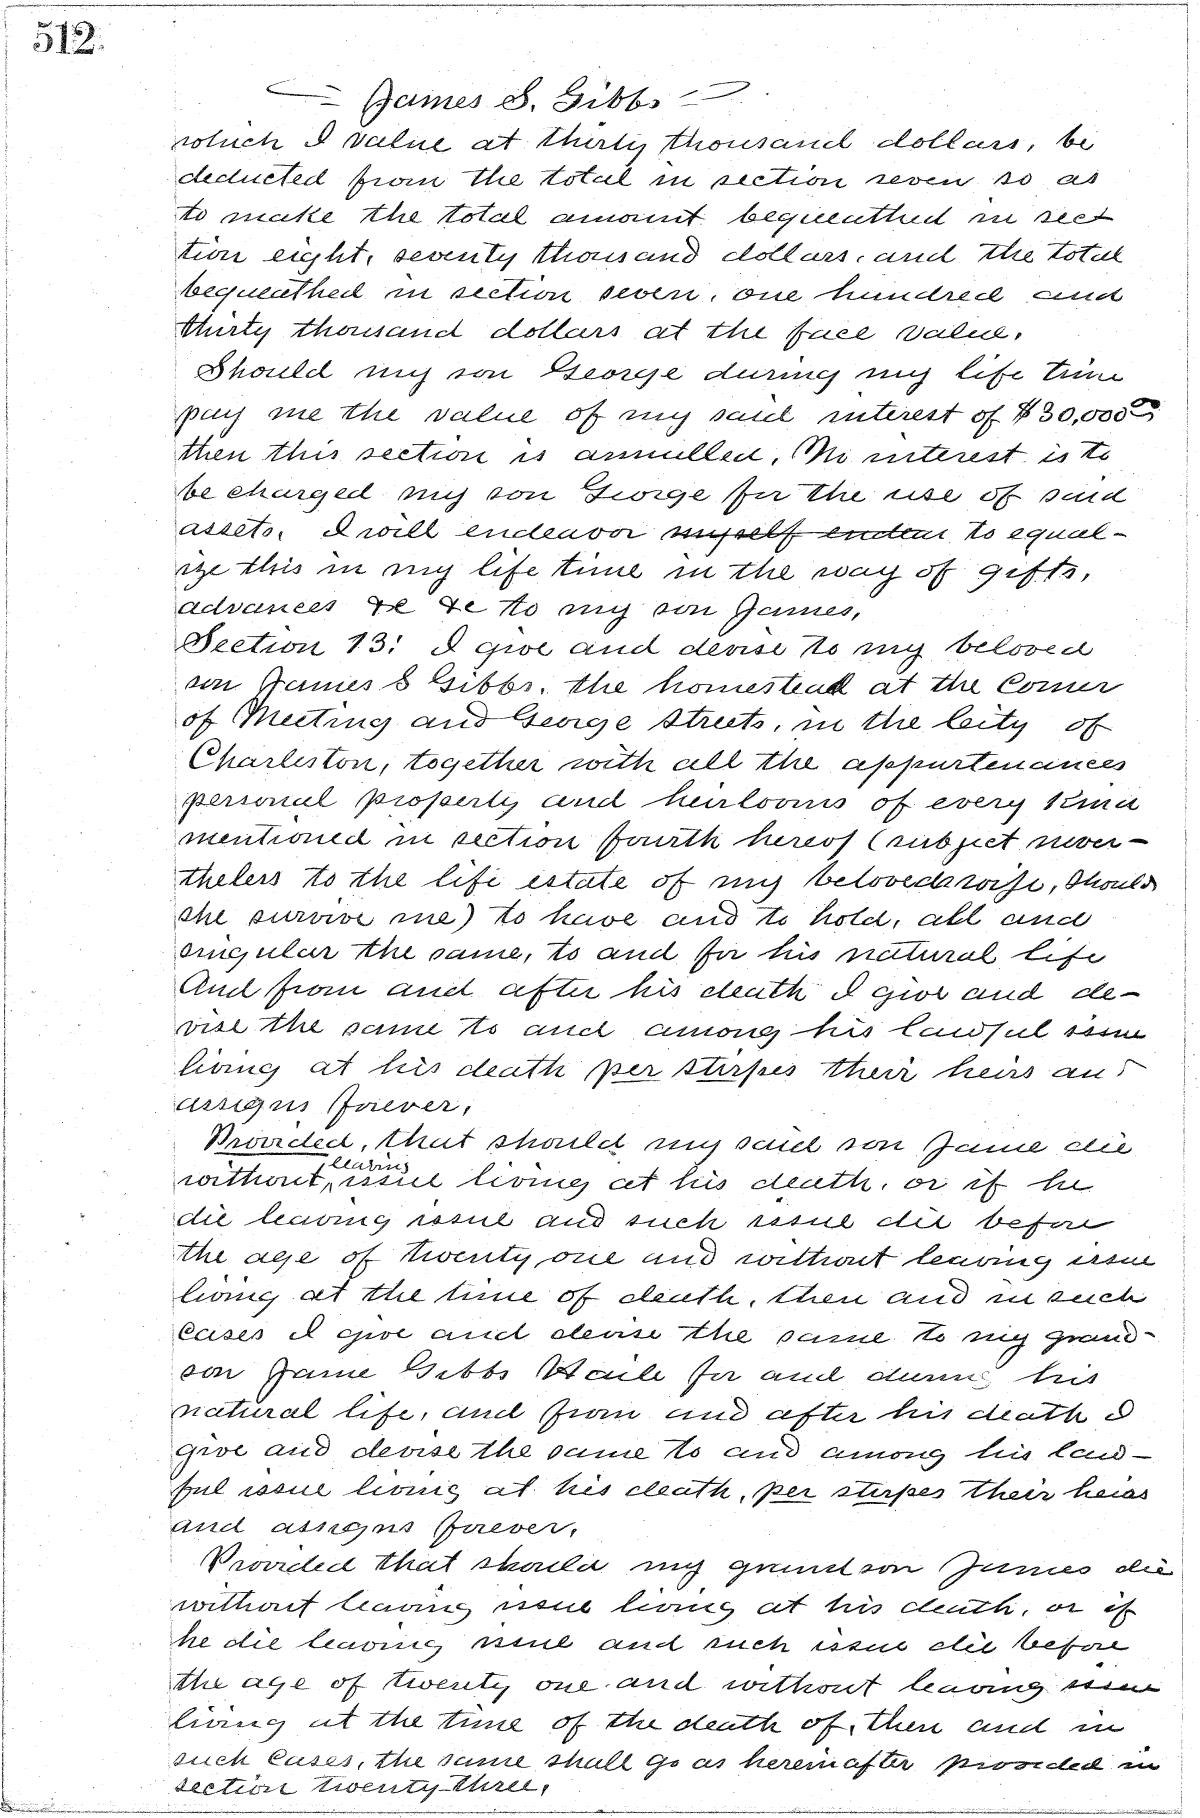 512.
James S. Gibbs
which I value at thirty thousand dollars, be
deducted from the total in section seven so as
to make the total amount bequeathed in sect
tion eight, seventy thousand dollars, and the total
bequeathed in section seven, one hundred and
thirty thousand dollars at the face value.
Should my son George during my life time
pay me the value of my said interest of $30,000 00
then this section is annulled, No interest is to
be charged my son George for the use of said
assets. I will endeavor myself endea to equal-
ize this in my life time in the way of gifts,
advances &c &c to my son James,
Section 13: I give and devise to my beloved
son James S Gibbs, the homestead at the Corner
of Meeting and George streets, in the City of
Charleston, together with all the appurtenances
personal property and heirlooms of every kind
mentioned in section fourth hereof (subject never-
theless to the life estate of my beloved wife, should
she survive me) to have and to hold, all and
singular the same, to and for his natural life
And from and after his death I give and de-
vise the same to and among his lawful issue
living at his death per stirpes their heirs and
assigns forever,
Provided, that should my said son Jame die
without leaving issue living at his death, or if he
die leaving issue and such issue die before
the age of twenty one and without leaving issue
living at the time of death, then and in such
cases I give and devise the same to my grand-
son Jame Gibbs Haile for and during his
natural life, and from and after his death I
give and devise the same to and among his law-
ful issue living at his death, per stirpes their heirs
and assigns forever,
Provided that should my grandson James die
without leaving issue living at his death, or if
he die leaving issue and such issue die before
the age of twenty one and without leaving issue
living at the time of the death of, then and in
such cases, the same shall go as hereinafter provided in
section twenty-three,